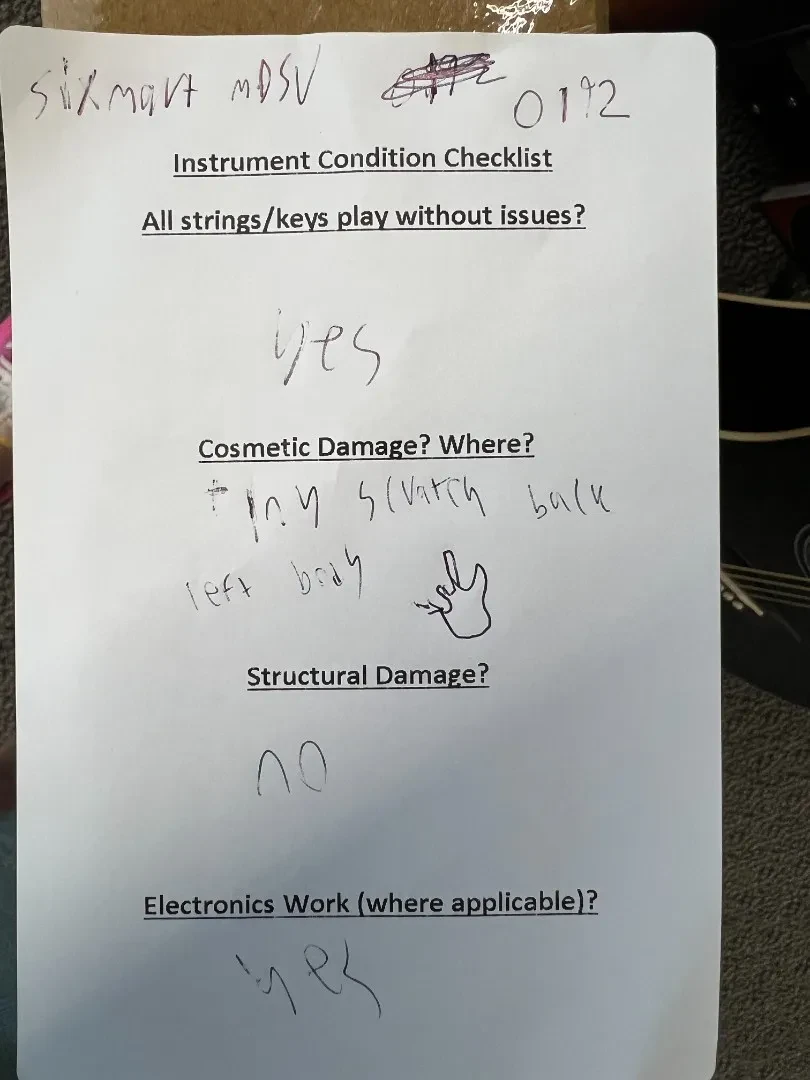 sixmart mDSV 0192
Instrument Condition Checklist
All strings/keys play without issues?
yes
Cosmetic Damage? Where?
tiny scratch back
left body
Structural Damage?
no
Electronics Work (where applicable)?
yes